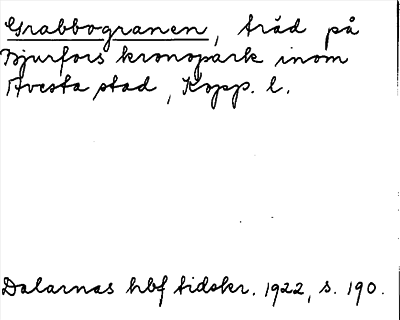 Grabbogranen, träd på
Bjurfors kronopark inom
Avesta stad, Kopp. l.
Dalarnas hbf tidskr. 1922, s. 190.